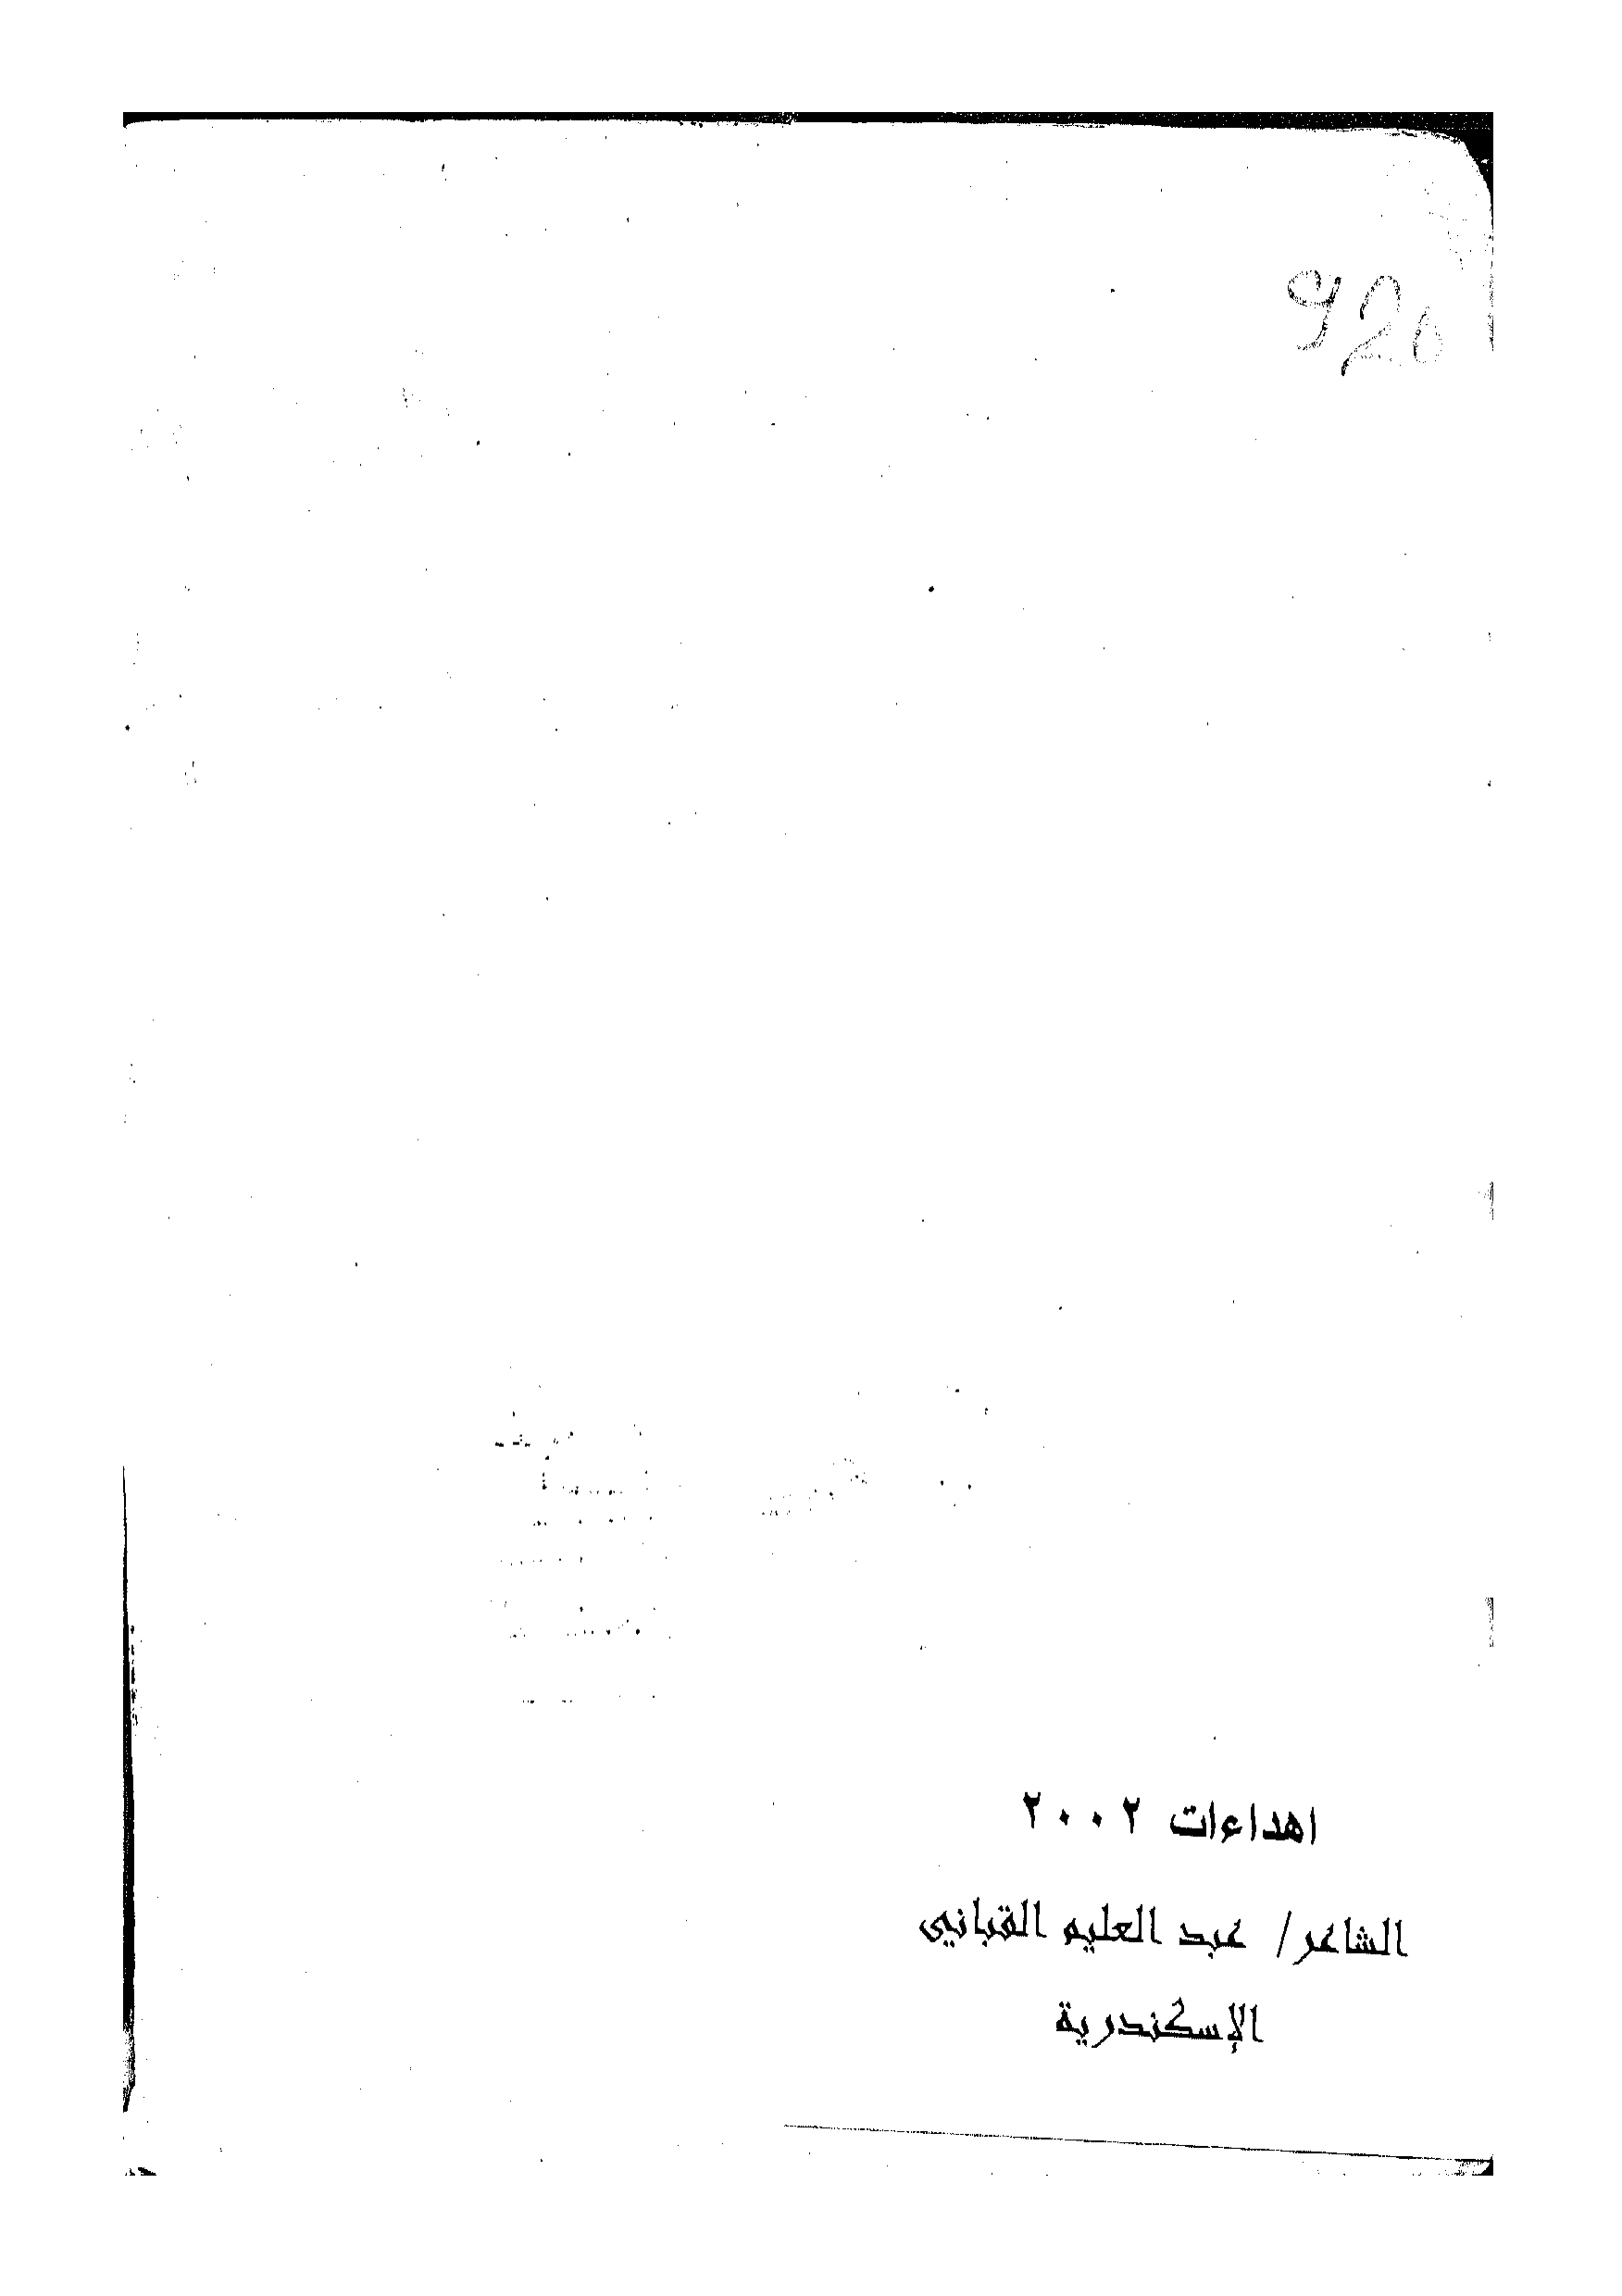 920
اهداءات ٢٠٠٢
الشاعر/ عبد العليم القباني
الإسكندرية